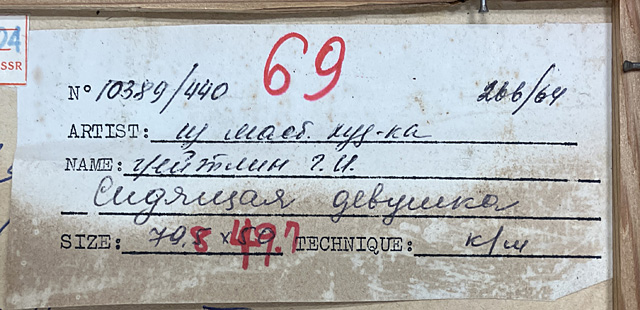 69
24
SSR
N° 10389/440 266/64
ARTIST: из маст. худ-ка
NAME: Цейтлин Г.И.
Сидящая девушка
SIZE: 79,5 x 59 49.7 TECHNIQUE: к/м